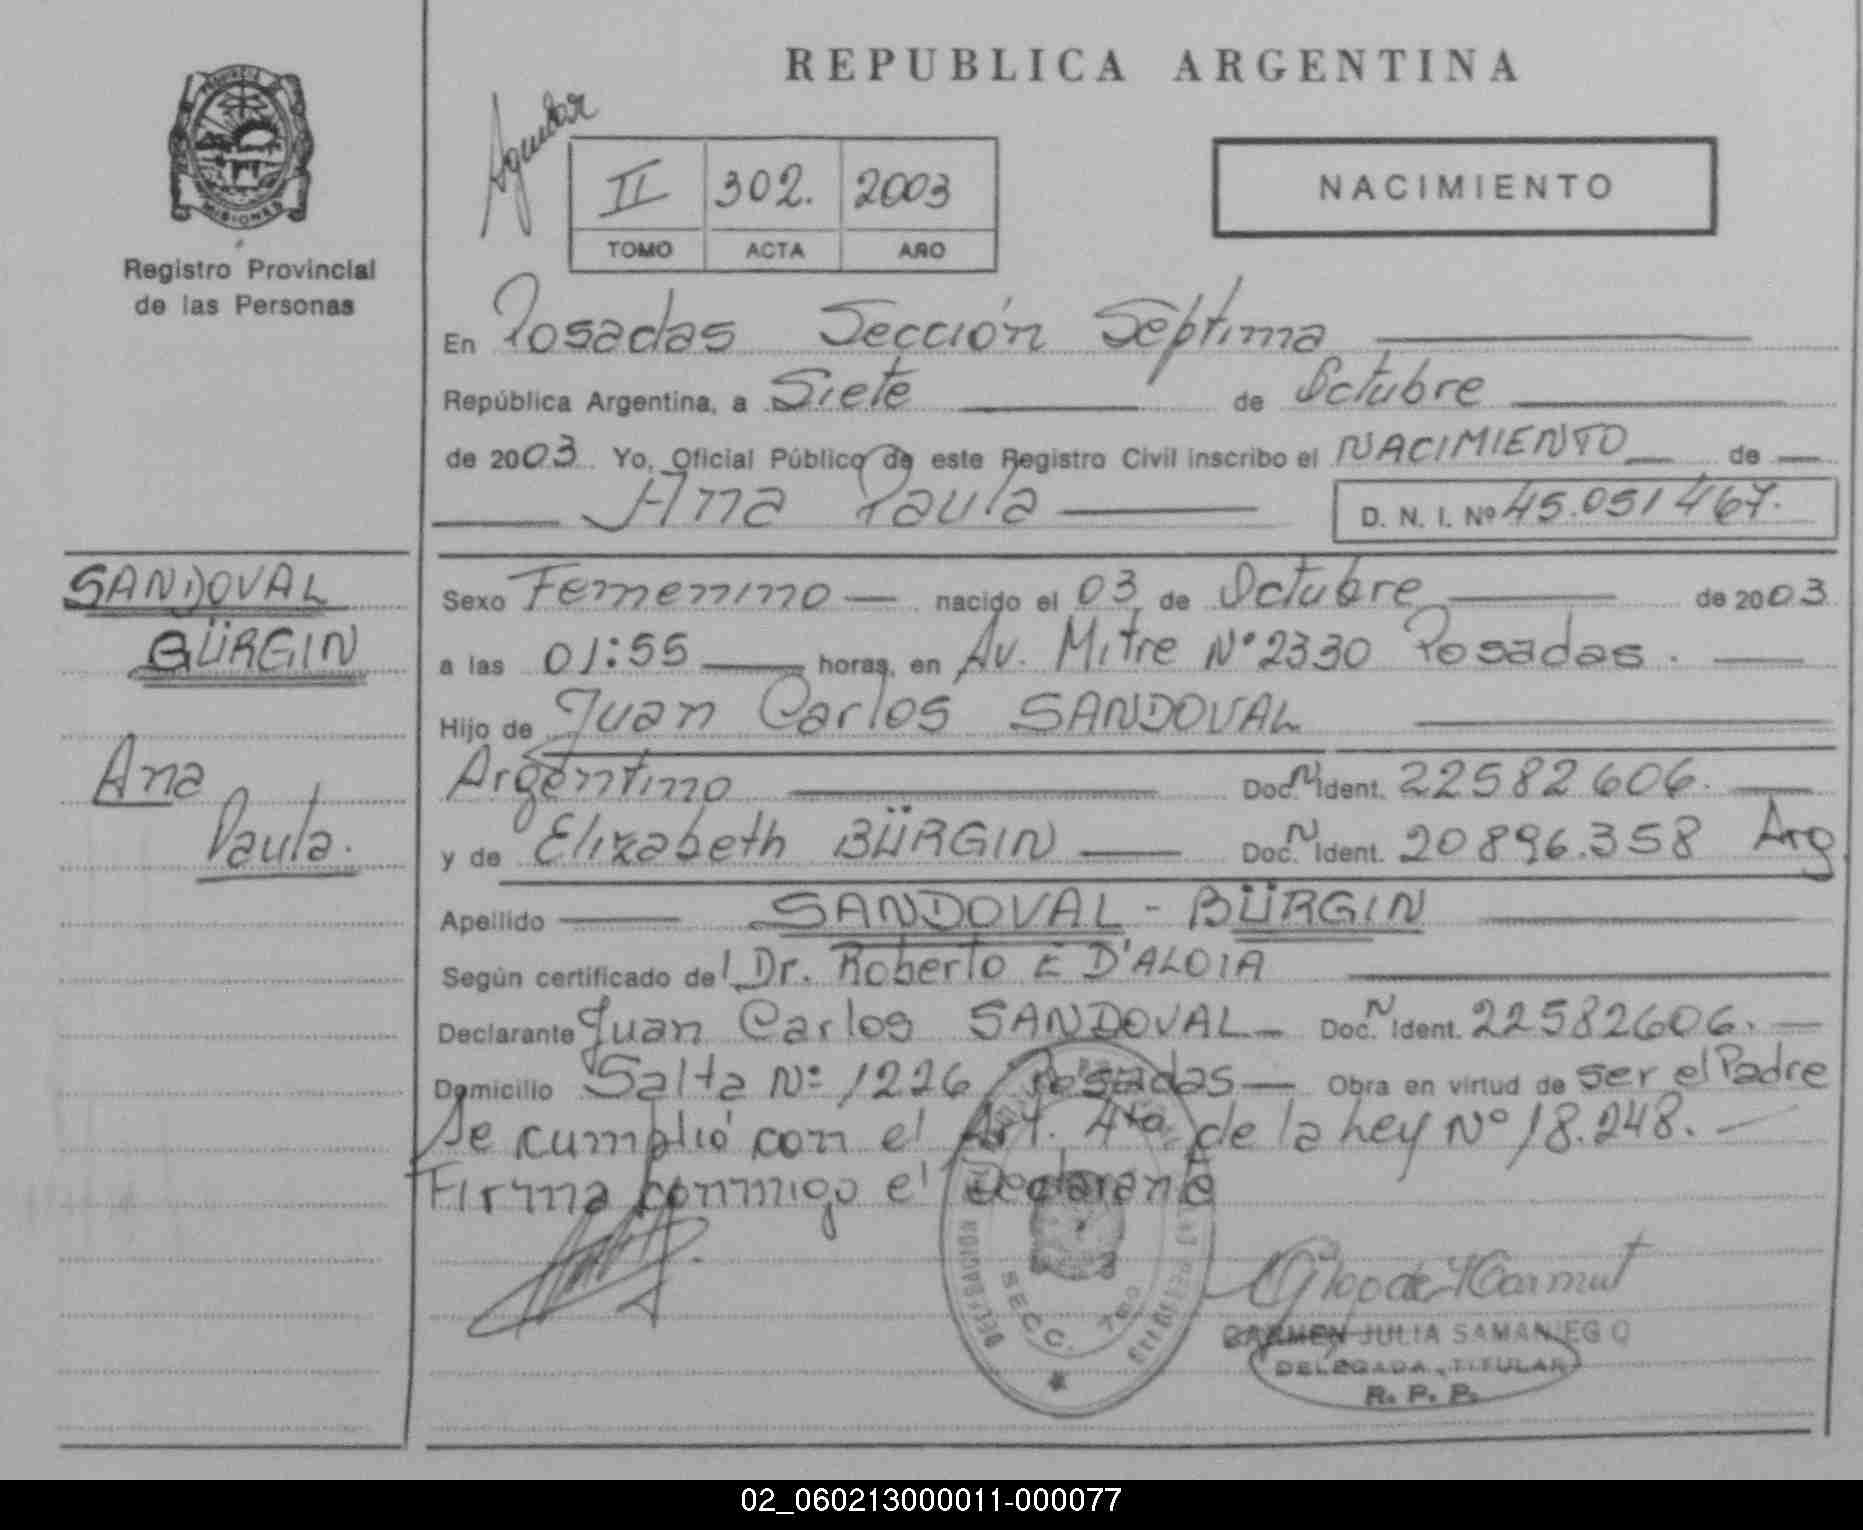 REPUBLICA ARGENTINA
Aguilar
PROVINCIA
MISIONES
Registro Provincial
de las Personas
II 302. 2003
TOMO ACTA AÑO
NACIMIENTO
En Posadas Sección Séptima
República Argentina, a Siete de Octubre
de 2003 Yo, Oficial Público de este Registro Civil inscribo el NACIMIENTO de
Ana Paula D. N. I. Nº 45.051467.
SANDOVAL
GÜRGIN
Ana
Paula.
Sexo Femenino nacido el 03 de Octubre de 2003
a las 01:55 horas, en Av. Mitre Nº 2330 Posadas.
Hijo de Juan Carlos SANDOVAL
Argentino Doc. N Ident. 22582606.
y de Elizabeth BÜRGIN Doc. N Ident. 20896.358 Arg
Apellido SANDOVAL - BÜRGIN
Según certificado del Dr. Roberto E D'ALOIA
Declarante Juan Carlos SANDOVAL Doc. N Ident. 22582606.
Domicilio Salta Nº 1226 Posadas Obra en virtud de ser el Padre
Se cumplió con el Art. 4to de la Ley Nº 18.248.
Firma conmigo el Declarante
SECC. 7ma
CARMEN JULIA SAMANIEGO
DELEGADA TITULAR
R. P. P.
02_060213000011-000077